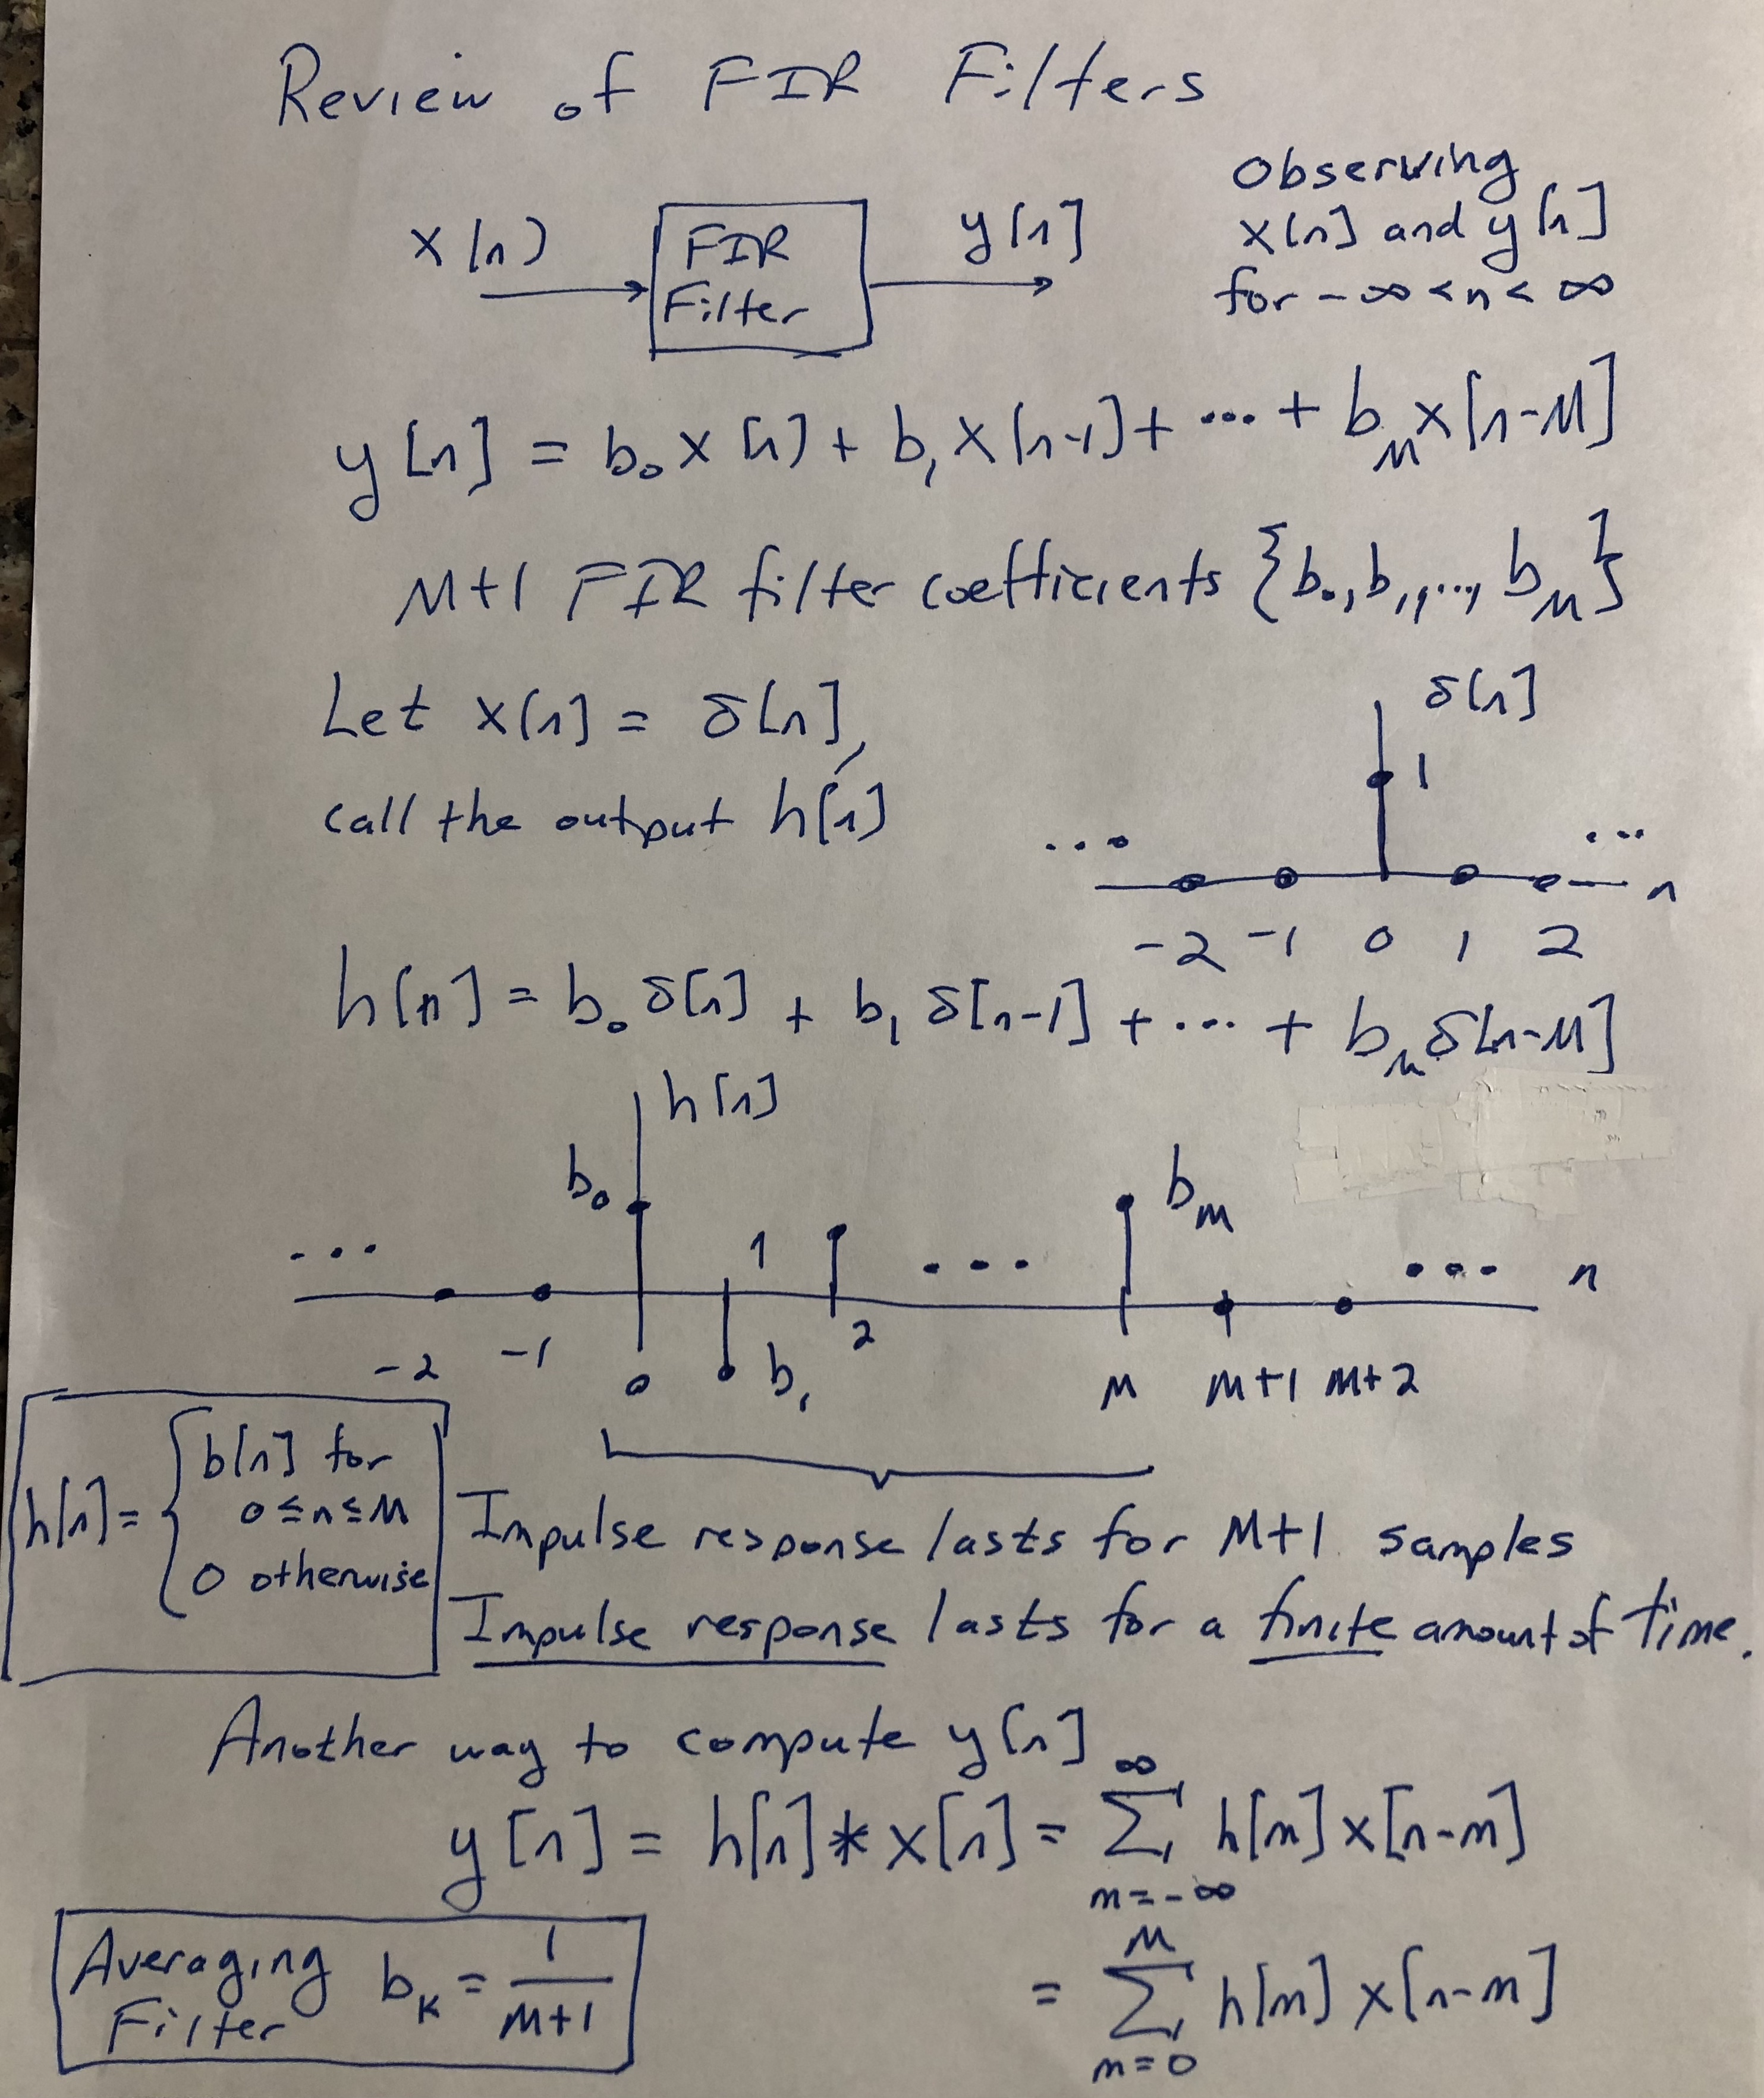 Review of FIR Filters
x[n]
FIR
Filter
y[n]
Observing
x[n] and y[n]
for -∞ < n < ∞
y[n] = b₀ x[n] + b₁ x[n-1] + ... + b_M x[n-M]
M+1 FIR filter coefficients {b₀, b₁, ..., b_M}
Let x[n] = δ[n],
call the output h[n]
δ[n]
1
... ...
n
-2 -1 0 1 2
h[n] = b₀ δ[n] + b₁ δ[n-1] + ... + b_M δ[n-M]
h[n]
b₀
b_M
... 1 ... ... n
-2 -1 0 b₁ 2 M M+1 M+2
h[n] = { b[n] for
0 ≤ n ≤ M
0 otherwise
Impulse response lasts for M+1 samples
Impulse response lasts for a finite amount of time.
Another way to compute y[n]
y[n] = h[n] * x[n] = ∑_{m=-∞}^{∞} h[m] x[n-m]
= ∑_{m=0}^{M} h[m] x[n-m]
Averaging
Filter
b_k = 1/(M+1)